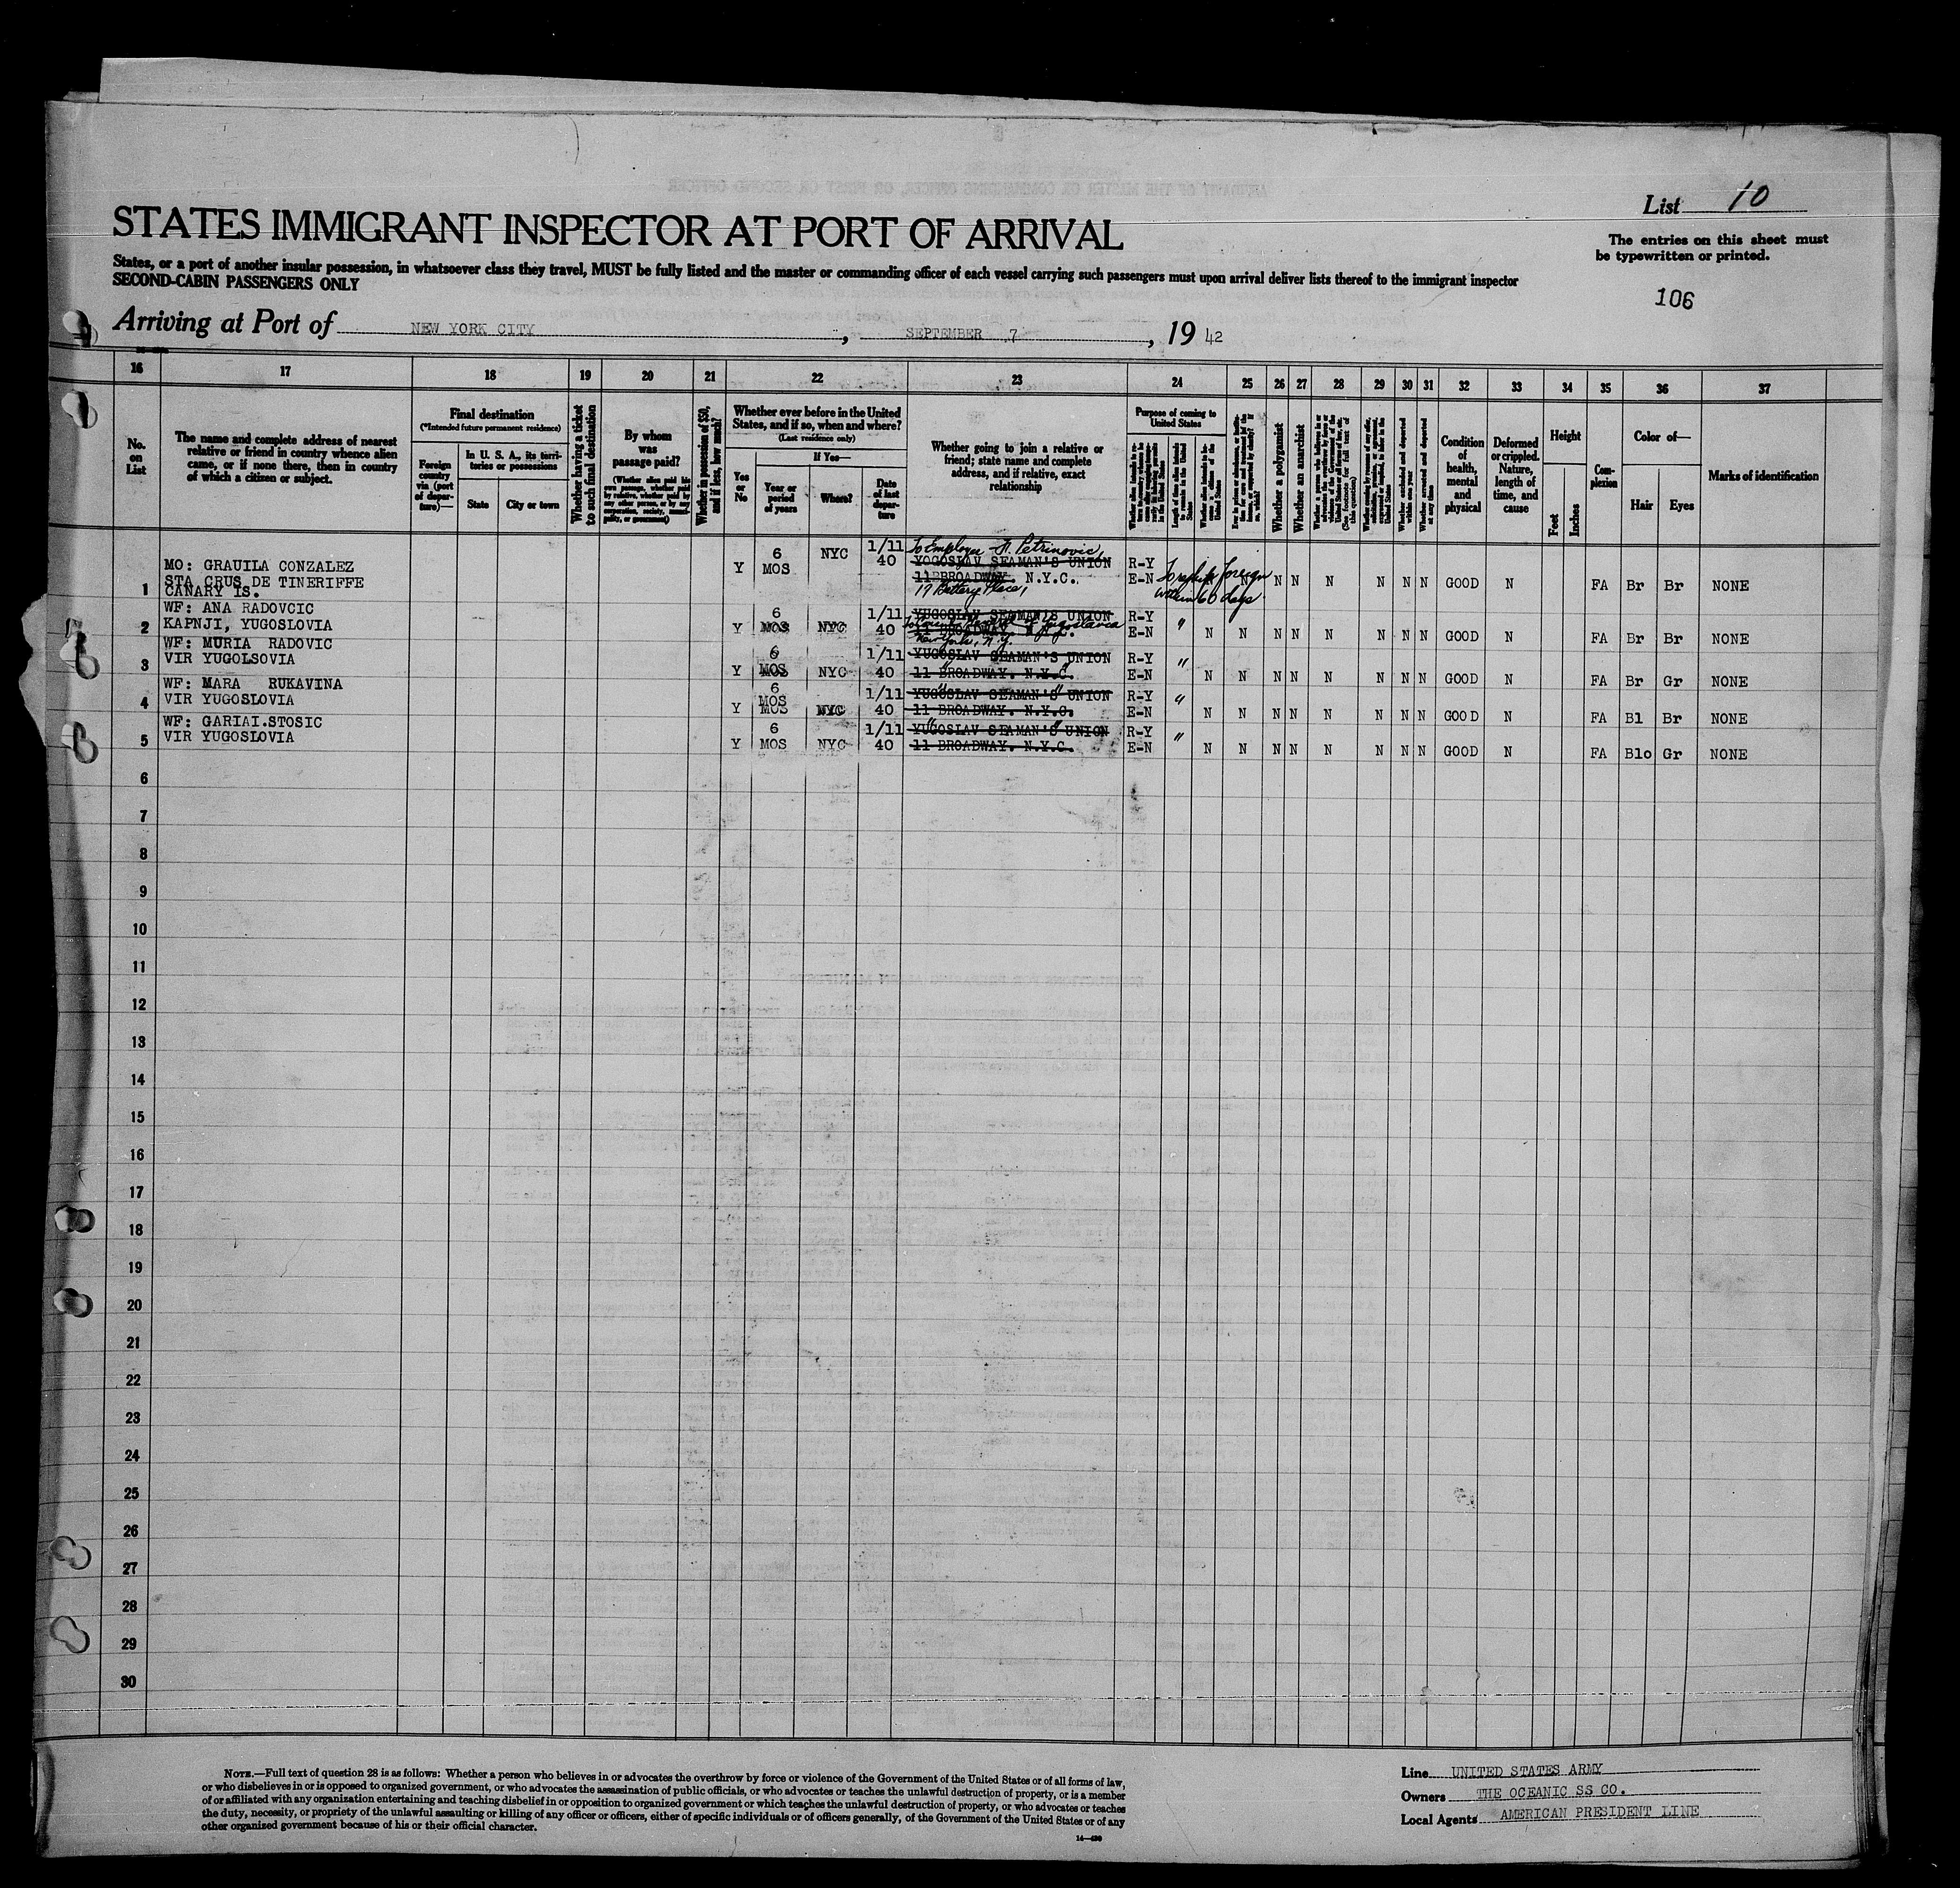 List 10
STATES IMMIGRANT INSPECTOR AT PORT OF ARRIVAL
The entries on this sheet must
be typewritten or printed.
States, or a port of another insular possession, in whatsoever class they travel, MUST be fully listed and the master or commanding officer of each vessel carrying such passengers must upon arrival deliver lists thereof to the immigrant inspector
SECOND-CABIN PASSENGERS ONLY
106
Arriving at Port of NEW YORK CITY, SEPTEMBER 7, 19 42
16 17 18 19 20 21 22 23 24 25 26 27 28 29 30 31 32 33 34 35 36 37
No. on List
The name and complete address of nearest relative or friend in country whence alien came, or if none there, then in country of which a citizen or subject.
Final destination
(*Intended future permanent residence)
Foreign country via (port of departure)—
In U. S. A., its territories or possessions
State
City or town
Whether having a ticket to such final destination
By whom was passage paid?
(Whether alien paid his own passage, whether paid by relative, whether paid by any other person, or by any corporation, society, municipality, or government)
Whether in possession of $50, and if less, how much?
Whether ever before in the United States, and if so, when and where?
(Last residence only)
Yes or No
If Yes—
Year or period of years
Where?
Date of last departure
Whether going to join a relative or friend; state name and complete address, and if relative, exact relationship
Purpose of coming to United States
Length of time alien intends to remain in the United States
Whether alien intends to become a citizen of the United States
Whether a polygamist
Whether an anarchist
(See footnote for full text of this question)
Whether arrested and deported within one year
Whether arrested and deported at any time
Condition of health, mental and physical
Deformed or crippled. Nature, length of time, and cause
Height
Feet
Inches
Complexion
Color of—
Hair
Eyes
Marks of identification
1 MO: GRAUILA CONZALEZ STA CRUS DE TINERIFFE CANARY IS. Y 6 MOS NYC 1/11 40 To Employer N. Petrinovic, YOGOSLAV SEAMAN'S UNION 11 BROADWAY. N.Y.C. 19 Battery Place, R-Y E-N To reship foreign within 60 days N N N N N N N N GOOD N FA Br Br NONE
2 WF: ANA RADOVCIC KAPNJI, YUGOSLOVIA Y 6 MOS NYC 1/11 40 YUGOSLAV SEAMAN'S UNION 11 BROADWAY. N.Y.C. Yugoslavia New York, N.Y. R-Y E-N " N N N N N N N N GOOD N FA Br Br NONE
3 WF: MURIA RADOVIC VIR YUGOLSOVIA Y 6 MOS NYC 1/11 40 YUGOSLAV SEAMAN'S UNION 11 BROADWAY. N.Y.C. " " R-Y E-N " N N N N N N N N GOOD N FA Br Gr NONE
4 WF: MARA RUKAVINA VIR YUGOSLOVIA Y 6 MOS MOS NYC 1/11 40 YUGOSLAV SEAMAN'S UNION 11 BROADWAY. N.Y.C. " " R-Y E-N " N N N N N N N N GOOD N FA Bl Br NONE
5 WF: GARIAI.STOSIC VIR YUGOSLOVIA Y 6 MOS NYC 1/11 40 YUGOSLAV SEAMAN'S UNION 11 BROADWAY. N.Y.C. " " R-Y E-N " N N N N N N N N GOOD N FA Blo Gr NONE
6
7
8
9
10
11
12
13
14
15
16
17
18
19
20
21
22
23
24
25
26
27
28
29
30
NOTE.—Full text of question 28 is as follows: Whether a person who believes in or advocates the overthrow by force or violence of the Government of the United States or of all forms of law,
or who disbelieves in or is opposed to organized government, or who advocates the assassination of public officials, or who advocates or teaches the unlawful destruction of property, or is a member
of or affiliated with any organization entertaining and teaching disbelief in or opposition to organized government or which teaches the unlawful destruction of property, or who advocates or teaches
the duty, necessity, or propriety of the unlawful assaulting or killing of any officer or officers, either of specific individuals or of officers generally, of the Government of the United States or of any
other organized government because of his or their official character.
Line UNITED STATES ARMY
Owners THE OCEANIC SS CO.
Local Agents AMERICAN PRESIDENT LINE